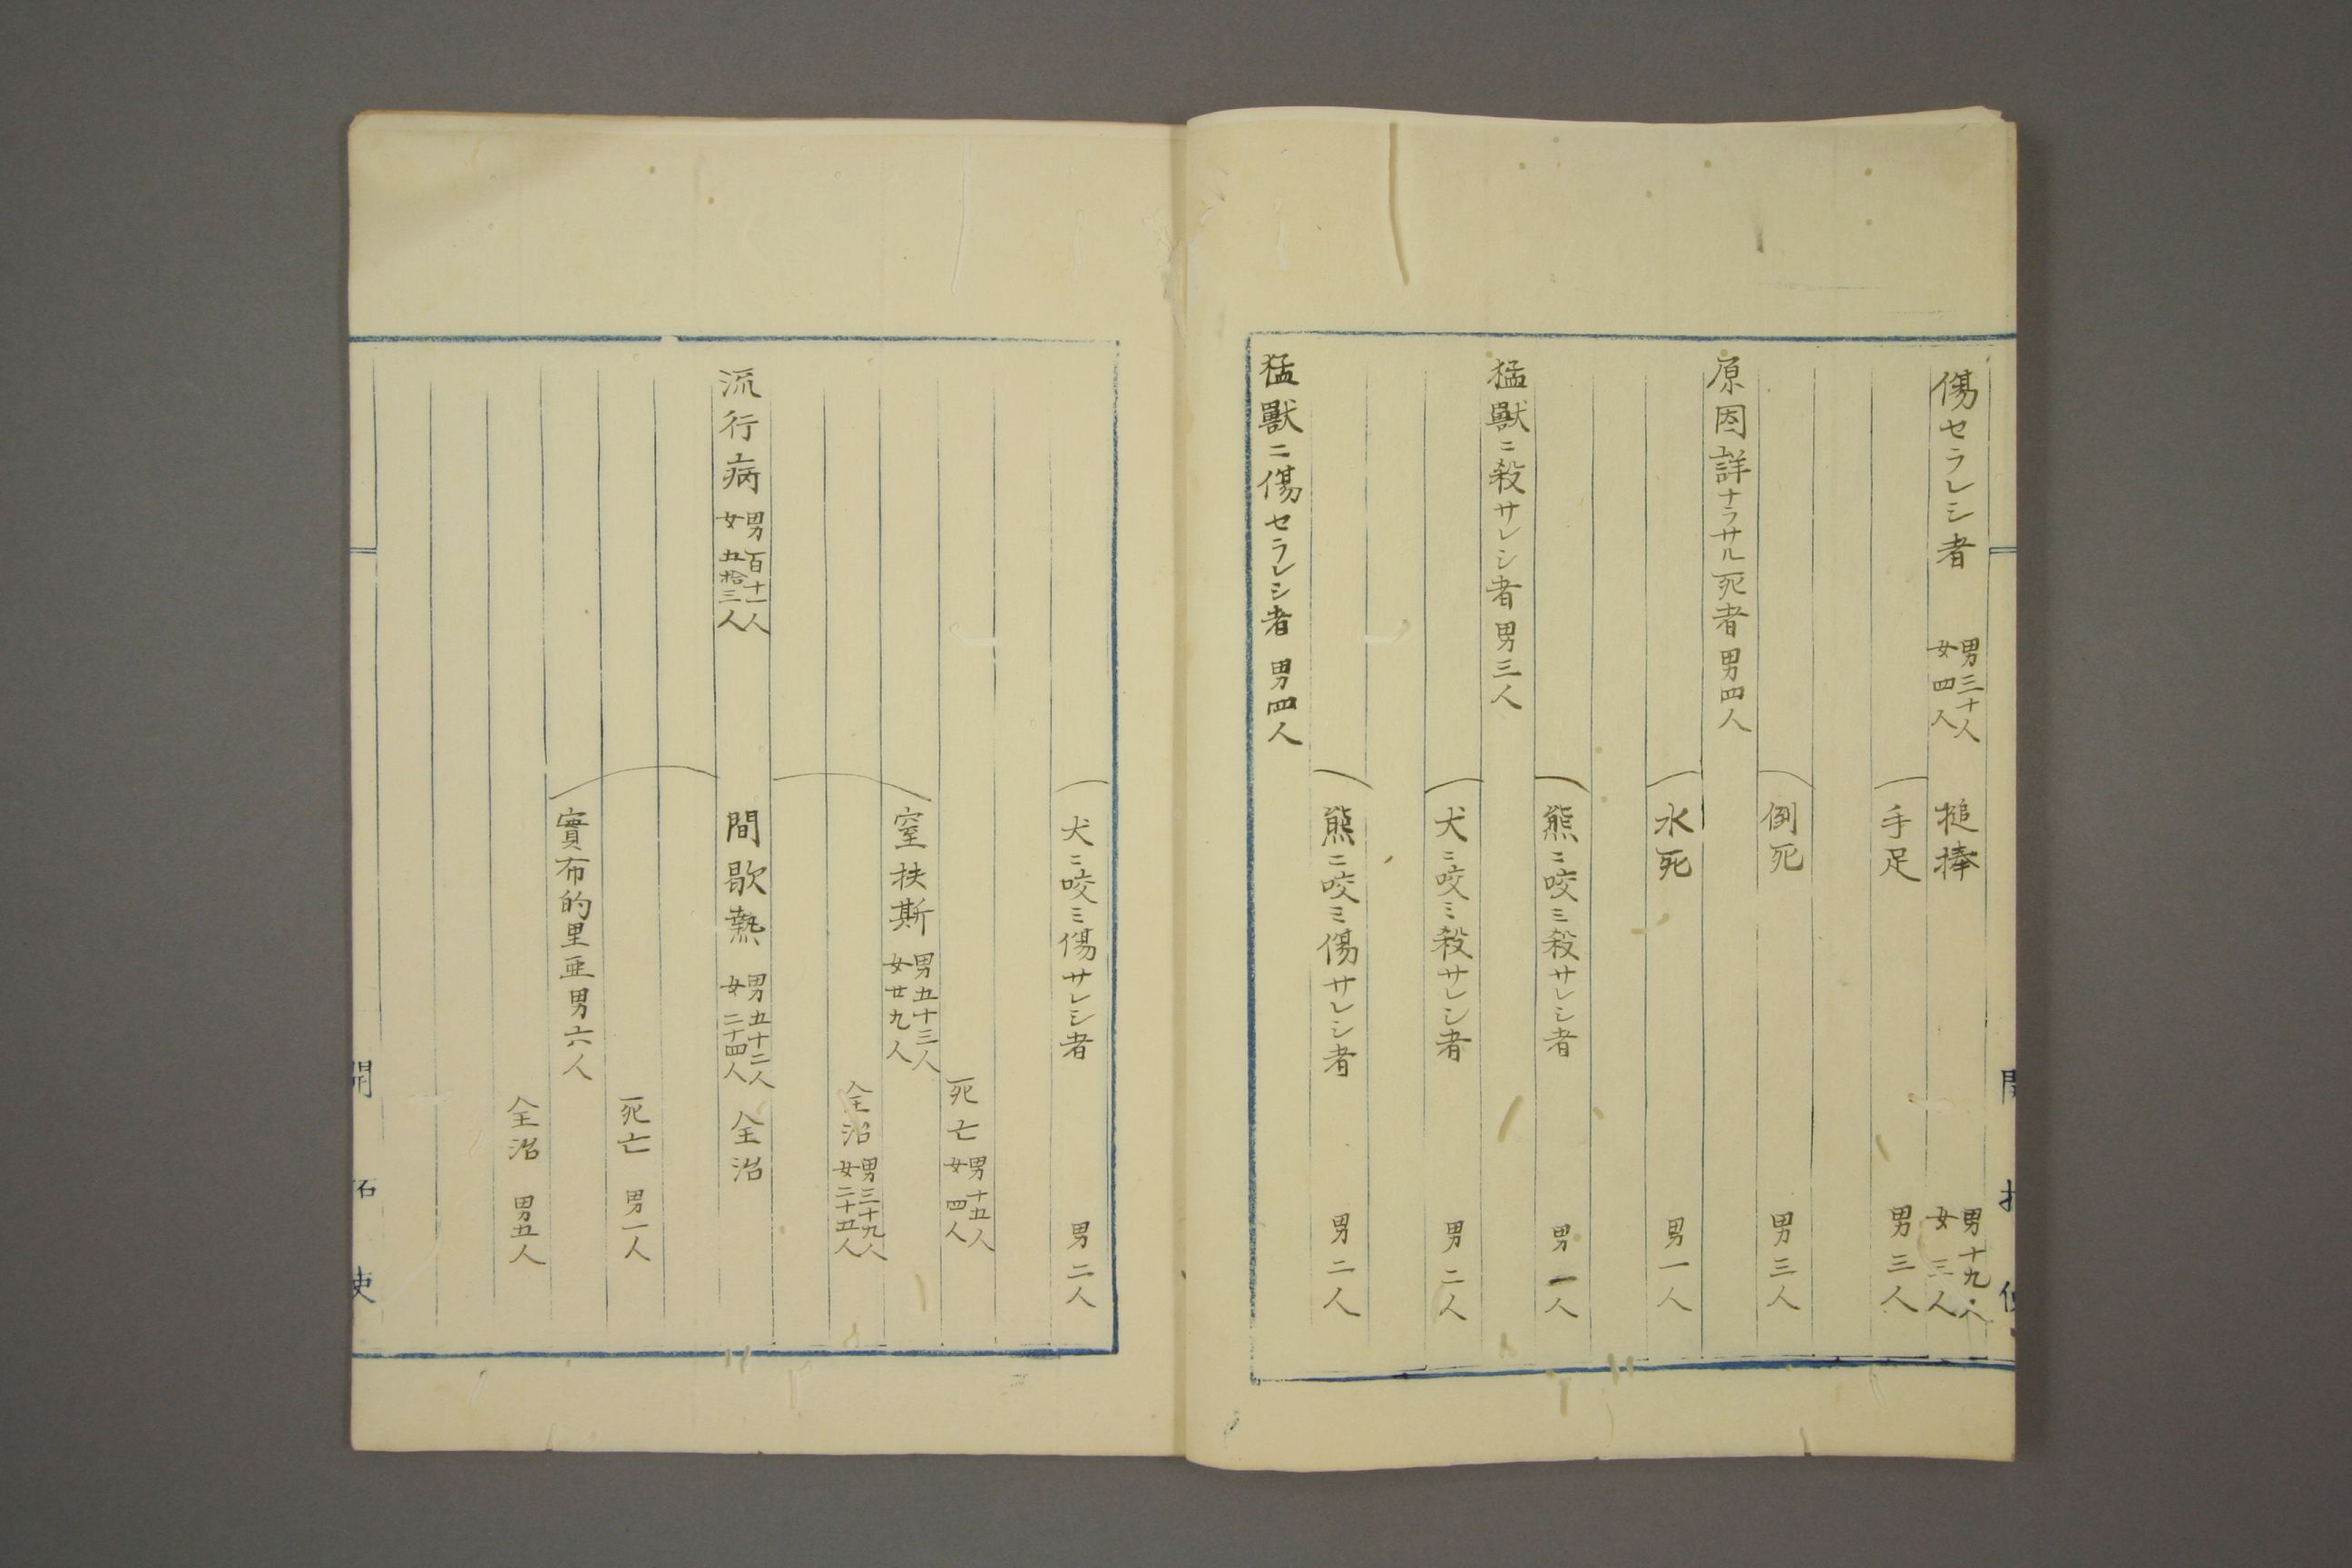 傷セラレシ者 男三十人 女四人 槌捧 男十九人 女三人
手足 男三人
倒死 男三人
原因詳ナラサル死者男四人
水死 男一人
熊ニ咬ミ殺サレシ者 男一人
猛獸ニ殺サレシ者男三人
犬ニ咬ミ殺サレシ者 男二人
熊ニ咬ミ傷サレシ者 男二人
猛獸ニ傷セラレシ者 男四人
犬ニ咬ミ傷サレシ者 男二人
死亡 男十五人 女四人
窒扶斯 男五十三人 女廿九人
全治 男三十九人 女二十五人
流行病 男百十一人 女五拾三人 間歇熱 男五十二人 女二十四人 全治
死亡 男一人
實布的里亜男六人
全治 男五人
開拓使